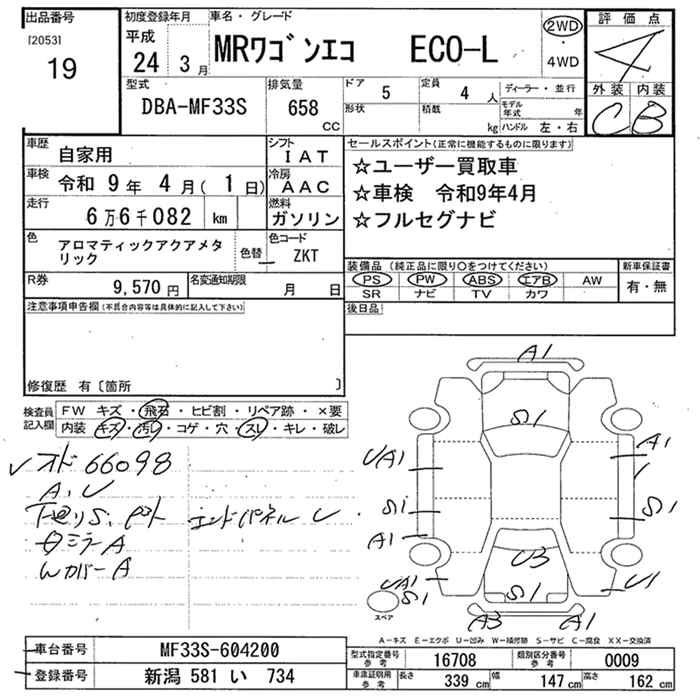 出品番号
[2053]
19
初度登録年月
平成
24 3月
車名・グレード
MRワゴンエコ ECO-L
2WD
・
4WD
評価点
4
外装 内装
C B
型式
DBA-MF33S
排気量
658
CC
ドア 5
定員 4人
ディーラー・並行
形状
積載 kg
モデル年式 年
ハンドル 左・右
車歴 自家用
シフト IAT
車検 令和 9年 4月( 1日)
冷房 AAC
走行 6万6千082 km
燃料 ガソリン
色 アロマティックアクアメタリック
色替
色コード ZKT
R券 9,570円
名変通知期限 月 日
セールスポイント(正常に機能するものに限ります)
☆ユーザー買取車
☆車検 令和9年4月
☆フルセグナビ
装備品(純正品に限り○をつけてください)
新車保証書
PS PW ABS エアB AW
SR ナビ TV カワ
有・無
後日品
注意事項申告欄(不具合内容等は具体的に記入して下さい)
修復歴 有〔箇所 〕
検査員記入欄
FW キズ・飛石・ヒビ割・リペア跡・×要
内装 キズ・汚レ・コゲ・穴・スレ・キレ・破レ
オド66098
A,U
下廻りS,
エンドパネル U
ミラーA
カバーA
A1
S1
UA1
A1
S1
S1
A1
U3
UA1
S1
S1
U1
A3
A1
スペア
A-キズ E-エクボ U-凹み W-補修跡 S-サビ C-腐食 XX-交換済
車台番号 MF33S-604200
登録番号 新潟 581 い 734
型式指定番号参考 16708
類別区分番号参考 0009
車庫証明用参考
長さ 339 cm
幅 147 cm
高さ 162 cm